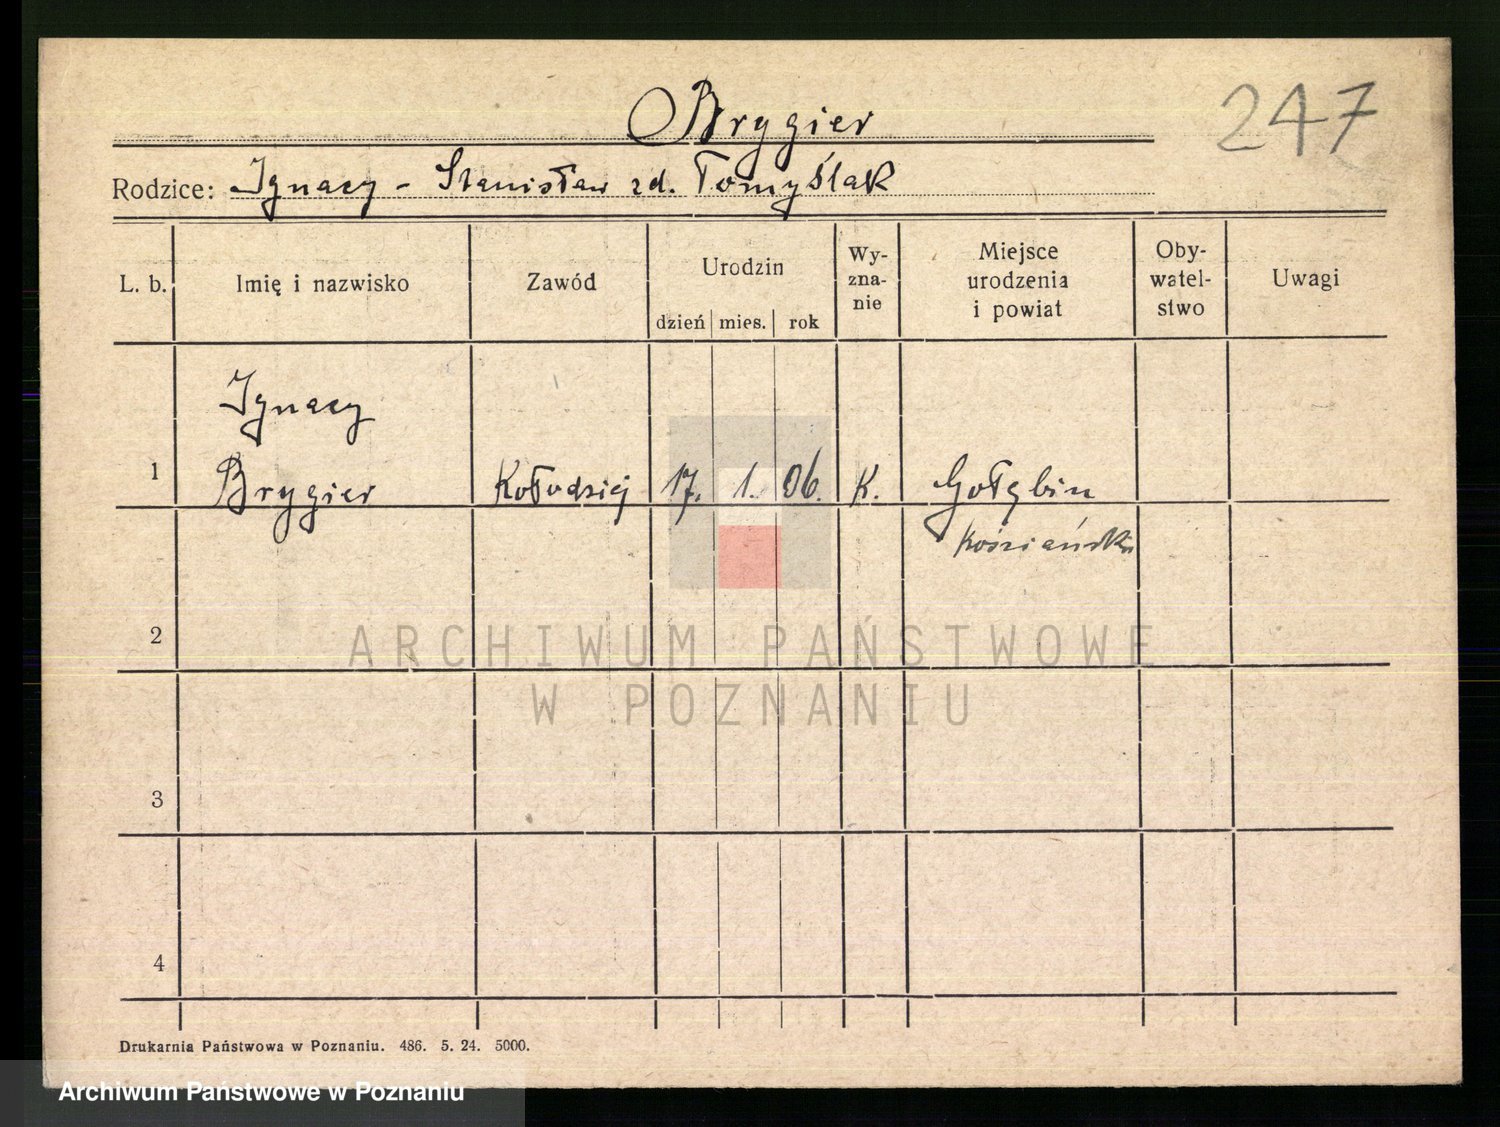 Brygier
247
Rodzice: Ignacy - Stanisław zd. Tomyślak
L. b. Imię i nazwisko Zawód Urodzin dzień mies. rok Wy-zna-nie Miejsce urodzenia i powiat Oby-watel-stwo Uwagi
Ignacy
1 Brygier Kołodziej 17. 1. 06. K. Gołębin
Kościański
2
ARCHIWUM PAŃSTWOWE
W POZNANIU
3
4
Drukarnia Państwowa w Poznaniu. 486. 5. 24. 5000.
Archiwum Państwowe w Poznaniu